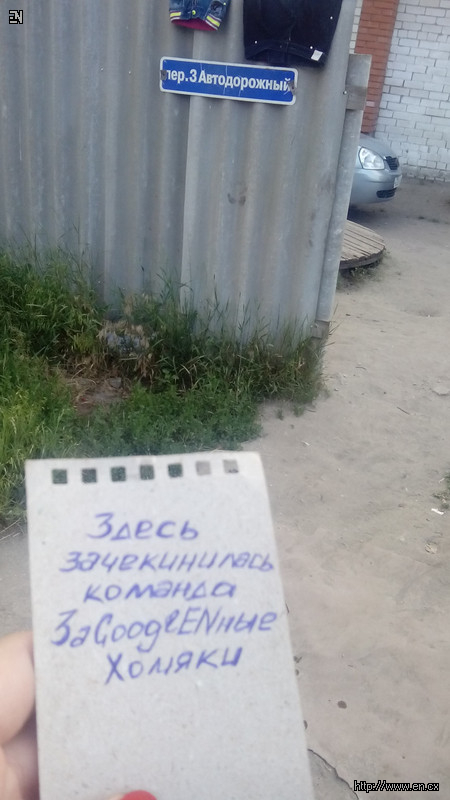 EN
пер. 3 Автодорожный
Здесь
зачекинилась
команда
ЗаGooglENные
Хомяки
http://www.en.cx